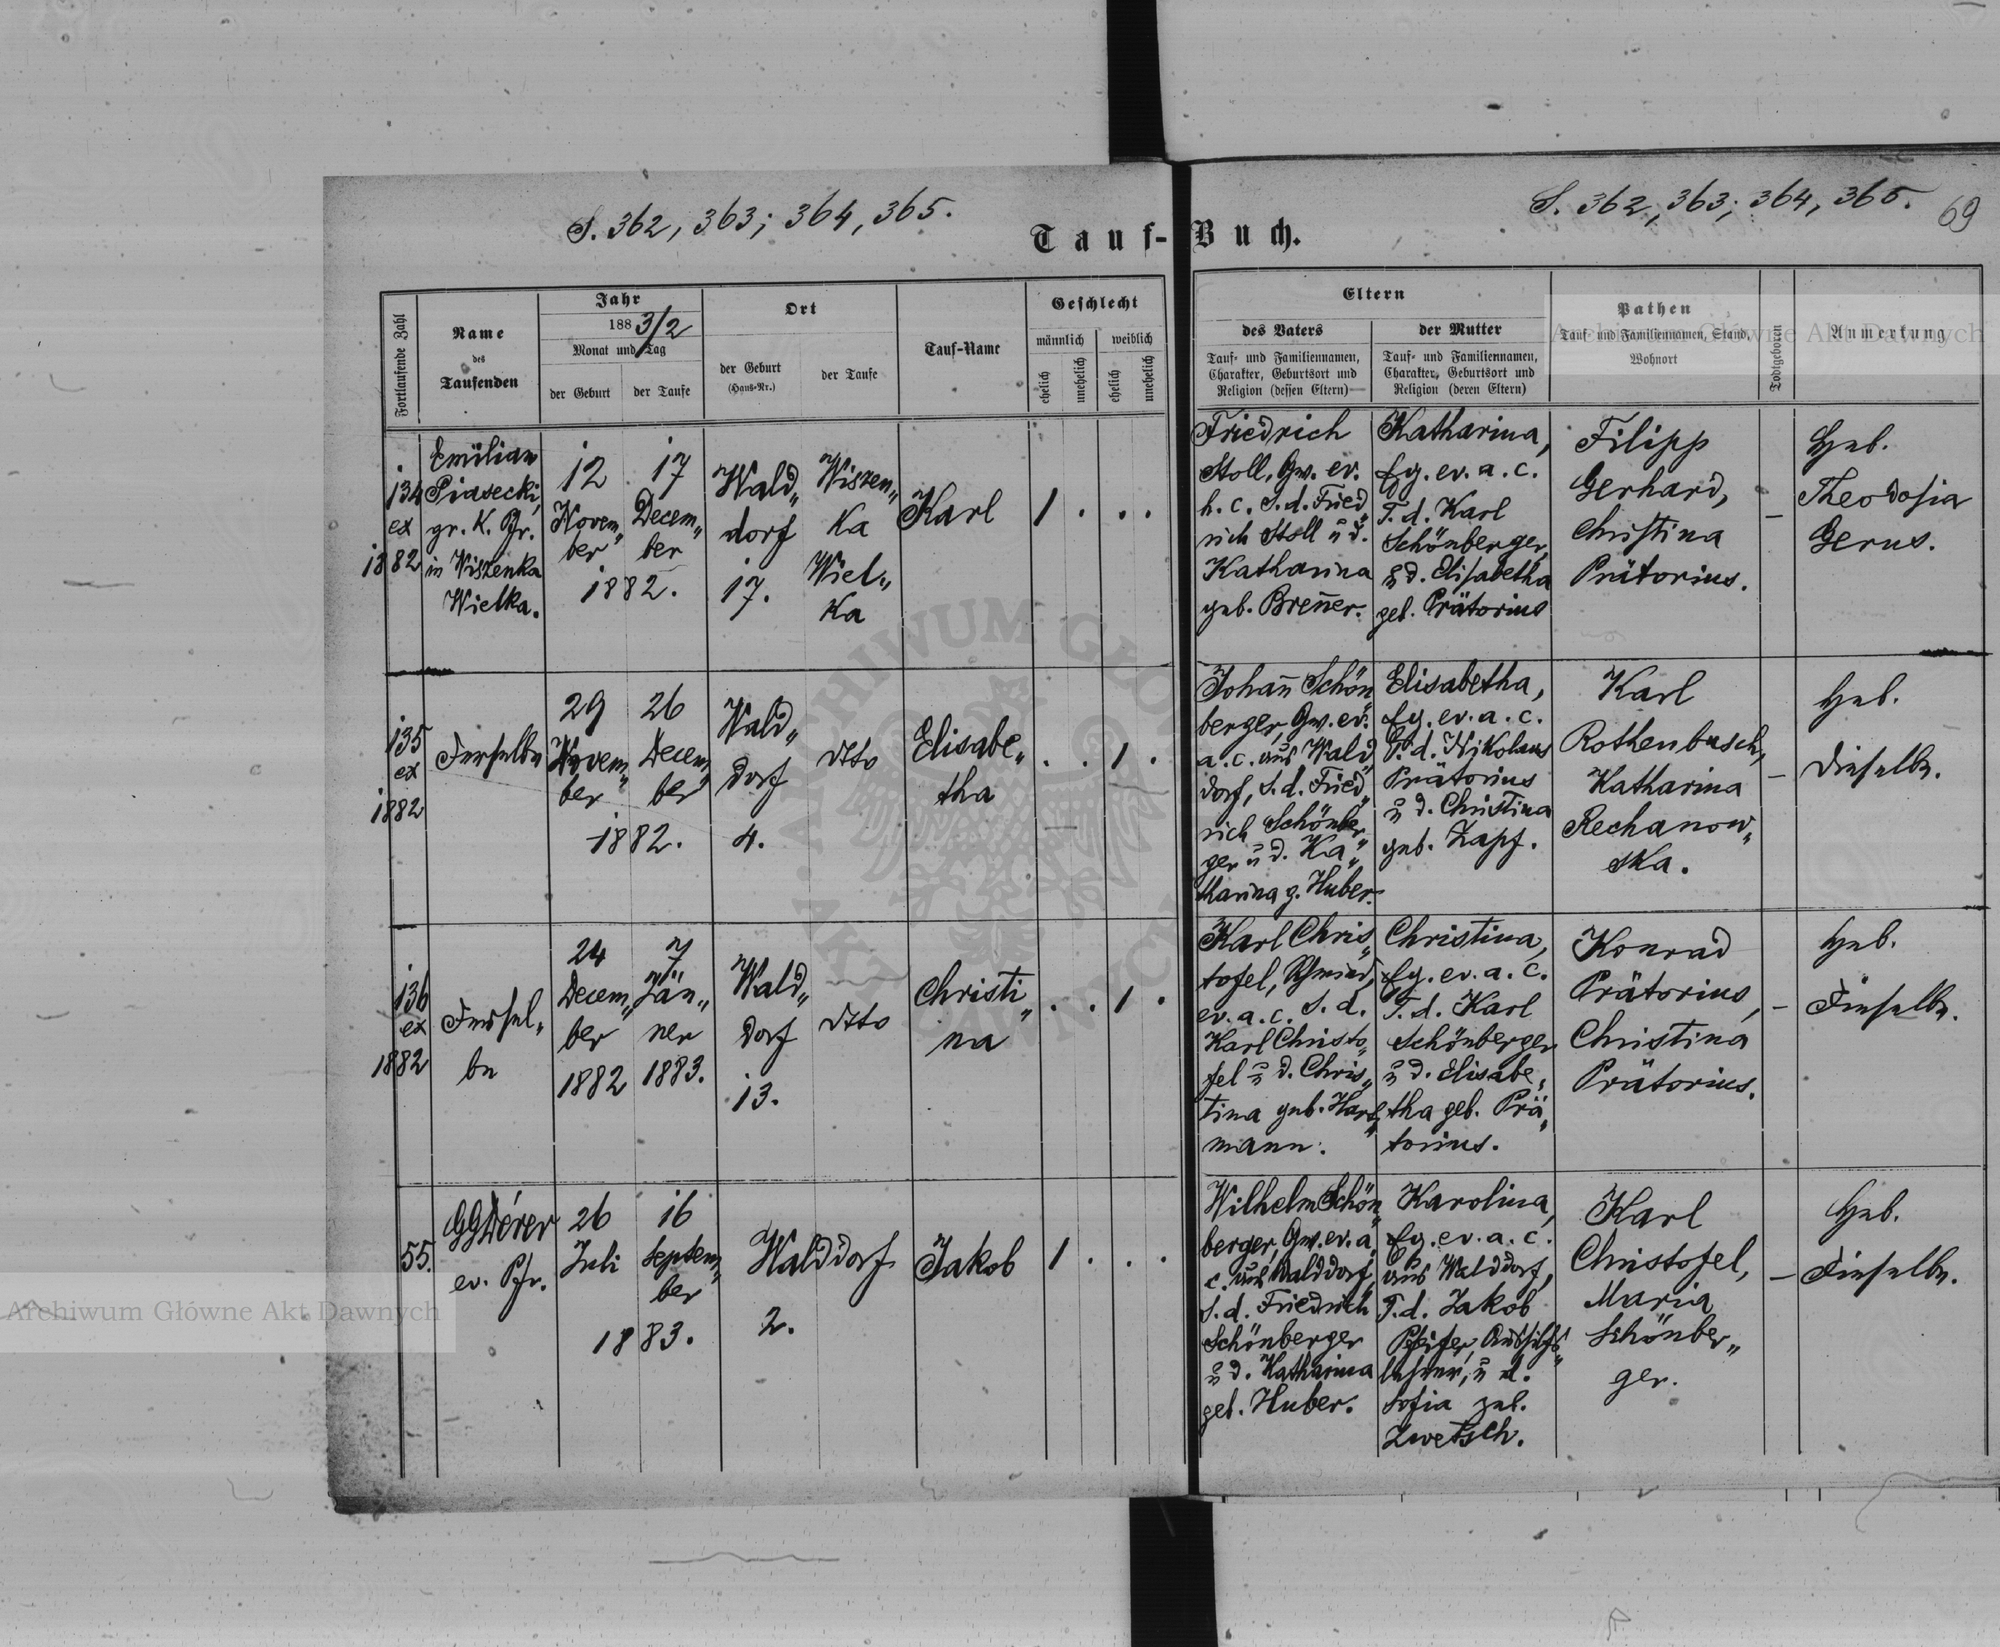 S. 362, 363; 364, 365.
S. 362, 363; 364, 365.
69
Tauf-Buch.
Fortlaufende Zahl
Name
des
Taufenden
Jahr
188 3/2
Monat und Tag
der Geburt
der Taufe
Ort
der Geburt
(Haus-Nr.)
der Taufe
Tauf-Name
Geschlecht
männlich
weiblich
ehelich
unehelich
ehelich
unehelich
Eltern
des Vaters
Tauf- und Familiennamen,
Charakter, Geburtsort und
Religion (dessen Eltern)
der Mutter
Tauf- und Familiennamen,
Charakter, Geburtsort und
Religion (deren Eltern)
Pathen
Tauf- und Familiennamen, Stand,
Wohnort
Todtgeboren
Anmerkung
134
ex
1882
Emilian
Piasecki,
gr. K. Pfr.
in Wiszenka
Wielka.
12
Novem„
ber
17
Decem„
ber
1882.
Wald„
dorf
17.
Wiszen„
ka
Wiel„
ka
Karl
1 . . .
Friedrich
Stoll, Gw. ev.
h. c. S. d. Fried„
rich Stoll u. d.
Katharina
geb. Breñer.
Katharina,
Eg. ev. a. c.
T. d. Karl
Schönberger,
u d. Elisabetha
geb. Prätorius
Filipp
Gerhard,
Christina
Prätorius.
–
Heb.
Theodosia
Gerus.
135
ex
1882
Derselbe
29
Novem„
ber
26
Decem„
ber
1882.
Wald„
dorf
4.
dtto
Elisabe„
tha
. . 1 .
Johañ Schön„
berger, Gw. ev.
a. c. aus Wald„
dorf, S. d. Fried„
rich Schönber„
ger u d. Ka„
tharina g. Huber.
Elisabetha,
Eg. ev. a. c.
T. d. Nikolaus
Prätorius
u d. Christina
geb. Zapf.
Karl
Rothenbusch,
Katharina
Rechanow„
ska.
–
Heb.
Dieselbe.
136
ex
1882
Dersel„
be
24
Decem„
ber
1882
7
Jän„
ner
1883.
Wald„
dorf
13.
dtto
Christi„
na
. . 1 .
Karl Chris„
tofel, Schmied,
ev. a. c. S. d.
Karl Christo„
fel u d. Chris„
tina geb. Hart„
mann.
Christina,
Eg. ev. a. c.
T. d. Karl
Schönberger
u d. Elisabe„
tha geb. Prä„
torius.
Konrad
Prätorius,
Christina
Prätorius.
–
Heb.
Dieselbe.
55.
ev. Pfr.
26
Juli
16
Septem„
ber
1883.
Walddorf
2.
Jakob
1 . . .
Wilhelm Schön„
berger, Gw. ev. a.
c. aus Walddorf,
S. d. Friedrich
Schönberger
u d. Katharina
geb. Huber.
Karolina,
Eg. ev. a. c.
aus Walddorf,
T. d. Jakob
lehrer, u d.
Sofia geb.
Zwetsch.
Karl
Christofel,
Maria
Schönber„
ger.
–
Heb.
Dieselbe.
Archiwum Główne Akt Dawnych
Archiwum Główne Akt Dawnych